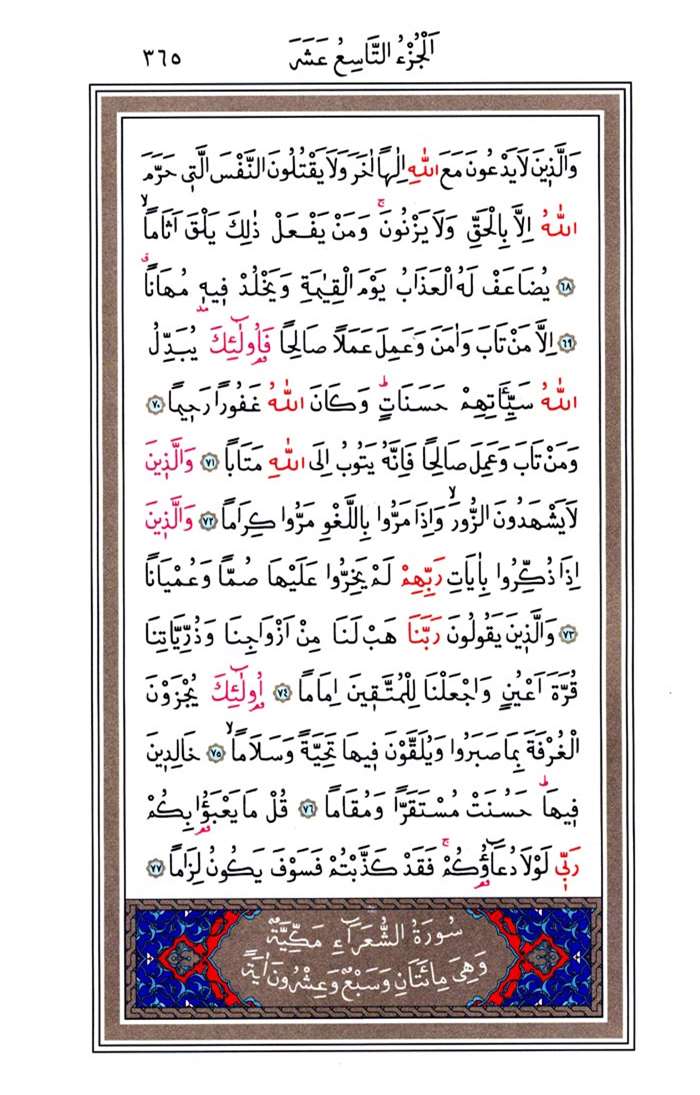 اَلْجُزْءُ التَّاسِعُ عَشَرَ ٣٦٥
وَالَّذ۪ينَ لَا يَدْعُونَ مَعَ اللّٰهِ اِلٰهًا اٰخَرَ وَلَا يَقْتُلُونَ النَّفْسَ الَّت۪ي حَرَّمَ
اللّٰهُ اِلَّا بِالْحَقِّ وَلَا يَزْنُونَۚ وَمَنْ يَفْعَلْ ذٰلِكَ يَلْقَ اَثَامًاۙ
﴿٦٨﴾ يُضَاعَفْ لَهُ الْعَذَابُ يَوْمَ الْقِيٰمَةِ وَيَخْلُدْ ف۪يه۪ مُهَانًاۗ
﴿٦٩﴾ اِلَّا مَنْ تَابَ وَاٰمَنَ وَعَمِلَ عَمَلًا صَالِحًا فَاُو۬لٰٓئِكَ يُبَدِّلُ
اللّٰهُ سَيِّـَٔاتِهِمْ حَسَنَاتٍۜ وَكَانَ اللّٰهُ غَفُورًا رَح۪يمًا ﴿٧٠﴾
وَمَنْ تَابَ وَعَمِلَ صَالِحًا فَاِنَّهُ يَتُوبُ اِلَى اللّٰهِ مَتَابًا ﴿٧١﴾ وَالَّذ۪ينَ
لَا يَشْهَدُونَ الزُّورَۙ وَاِذَا مَرُّوا بِاللَّغْوِ مَرُّوا كِرَامًا ﴿٧٢﴾ وَالَّذ۪ينَ
اِذَا ذُكِّرُوا بِاٰيَاتِ رَبِّهِمْ لَمْ يَخِرُّوا عَلَيْهَا صُمًّا وَعُمْيَانًا
﴿٧٣﴾ وَالَّذ۪ينَ يَقُولُونَ رَبَّنَا هَبْ لَنَا مِنْ اَزْوَاجِنَا وَذُرِّيَّاتِنَا
قُرَّةَ اَعْيُنٍ وَاجْعَلْنَا لِلْمُتَّق۪ينَ اِمَامًا ﴿٧٤﴾ اُو۬لٰٓئِكَ يُجْزَوْنَ
الْغُرْفَةَ بِمَا صَبَرُوا وَيُلَقَّوْنَ ف۪يهَا تَحِيَّةً وَسَلَامًاۙ ﴿٧٥﴾ خَالِد۪ينَ
ف۪يهَاۜ حَسُنَتْ مُسْتَقَرًّا وَمُقَامًا ﴿٧٦﴾ قُلْ مَا يَعْبَؤُ۬ا بِكُمْ
رَبّ۪ي لَوْلَا دُعَٓاؤُ۬كُمْۚ فَقَدْ كَذَّبْتُمْ فَسَوْفَ يَكُونُ لِزَامًا ﴿٧٧﴾
سُورَةُ الشُّعَرَٓاءِ مَكِّيَّةٌ
وَهِيَ مِائَتَانِ وَسَبْعٌ وَعِشْرُونَ اٰيَةً